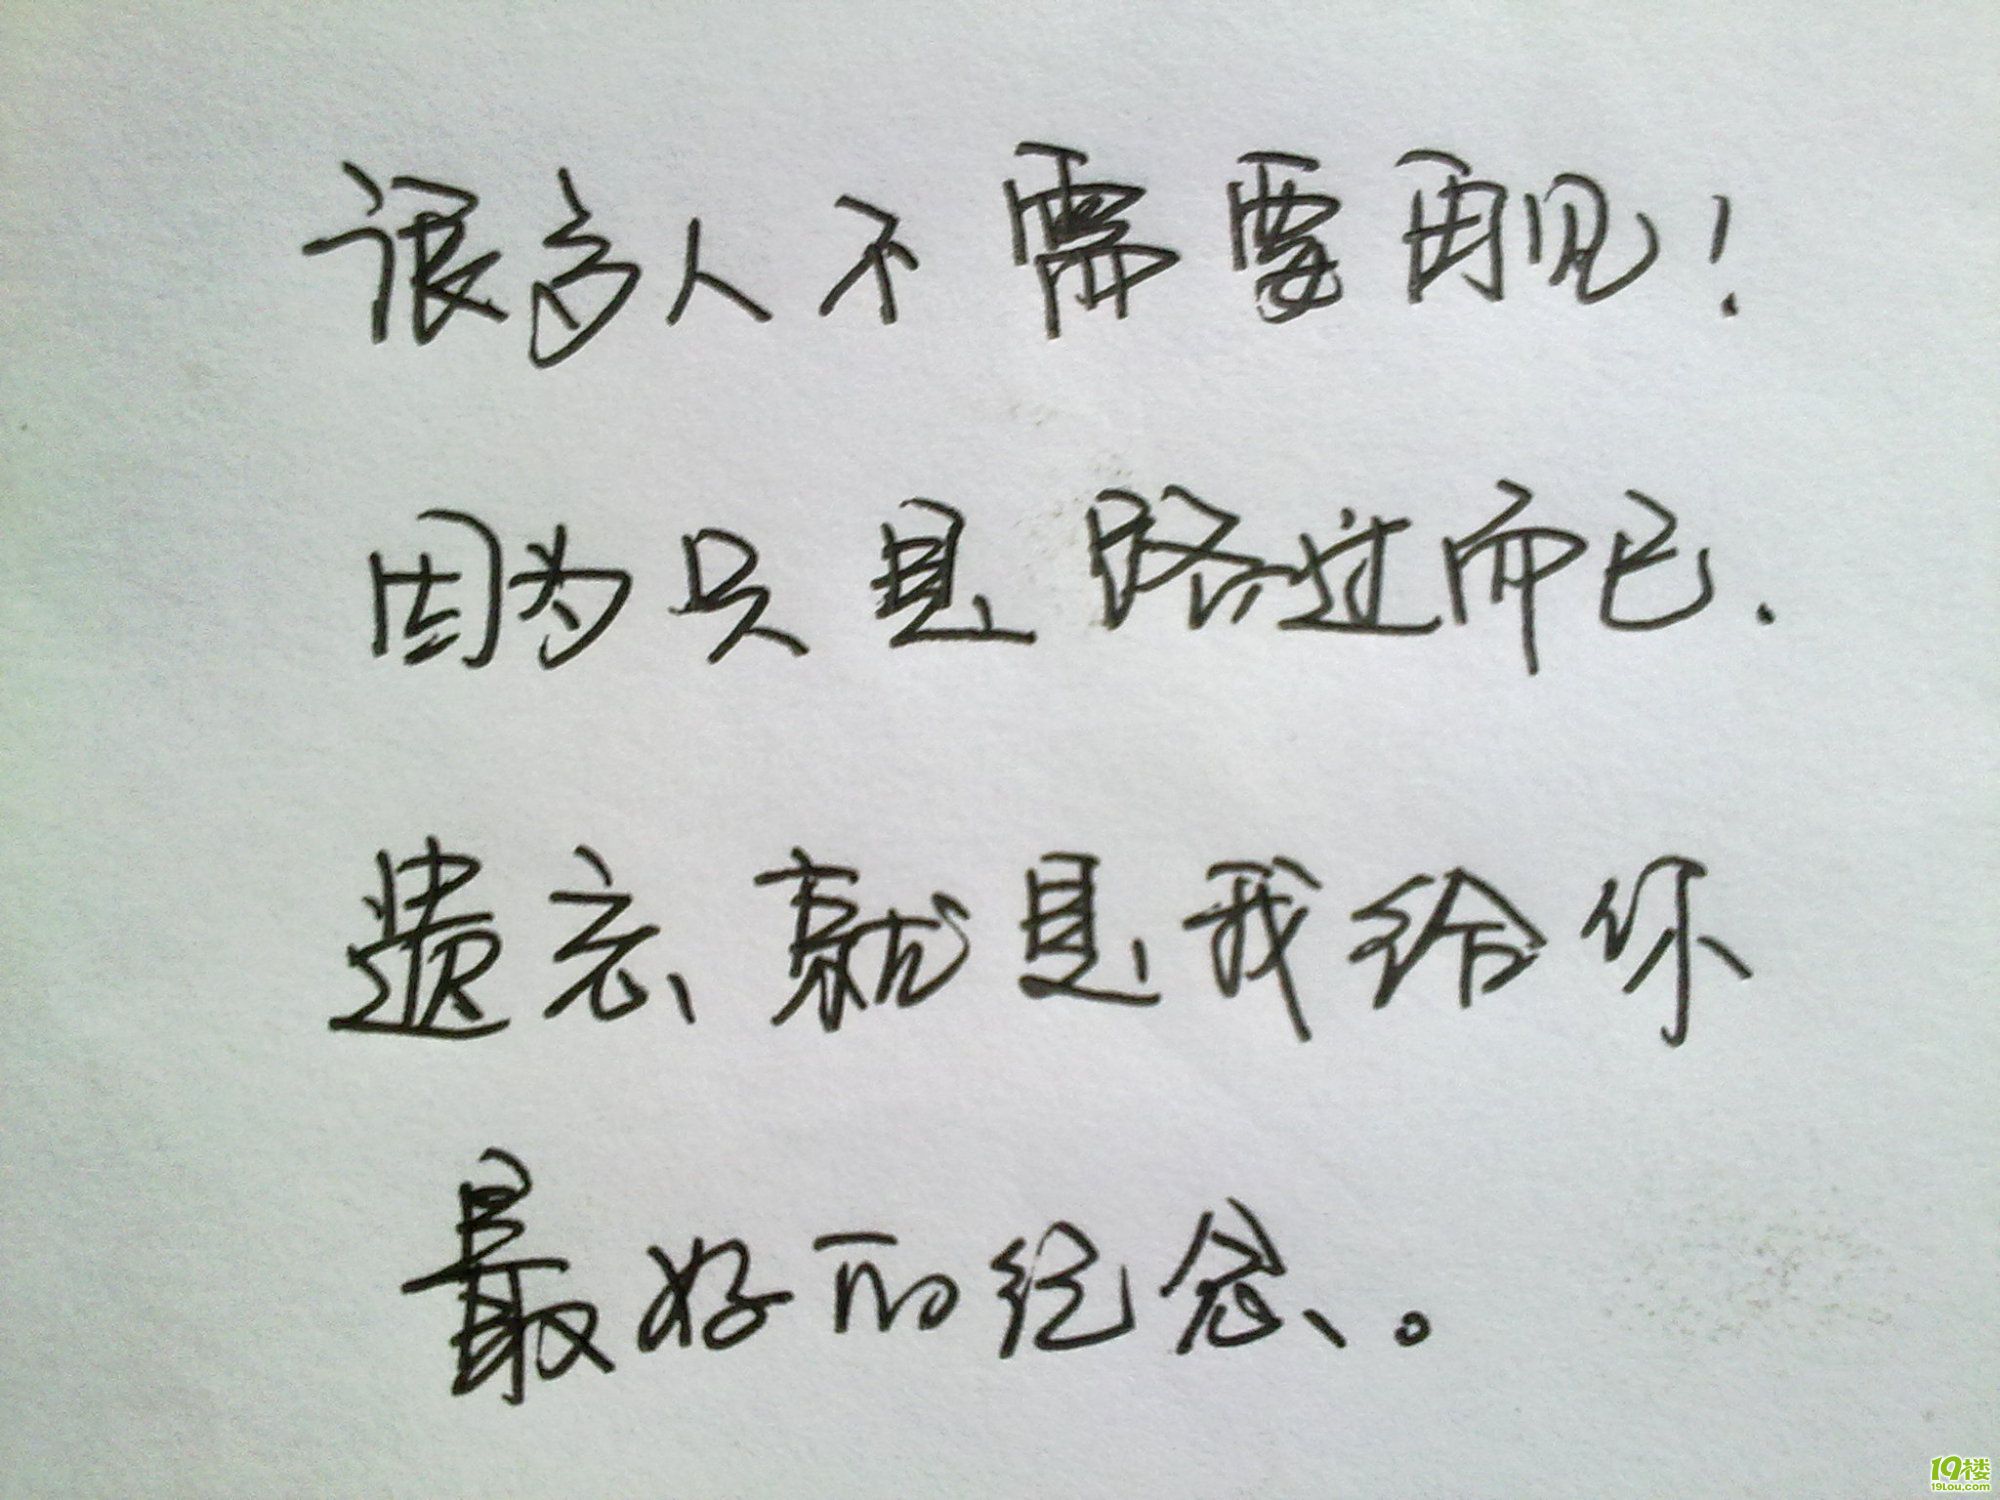 很多人不需要再见!
因为只是路过而已.
遗忘就是我给你
最好的纪念。
19楼
19lou.com